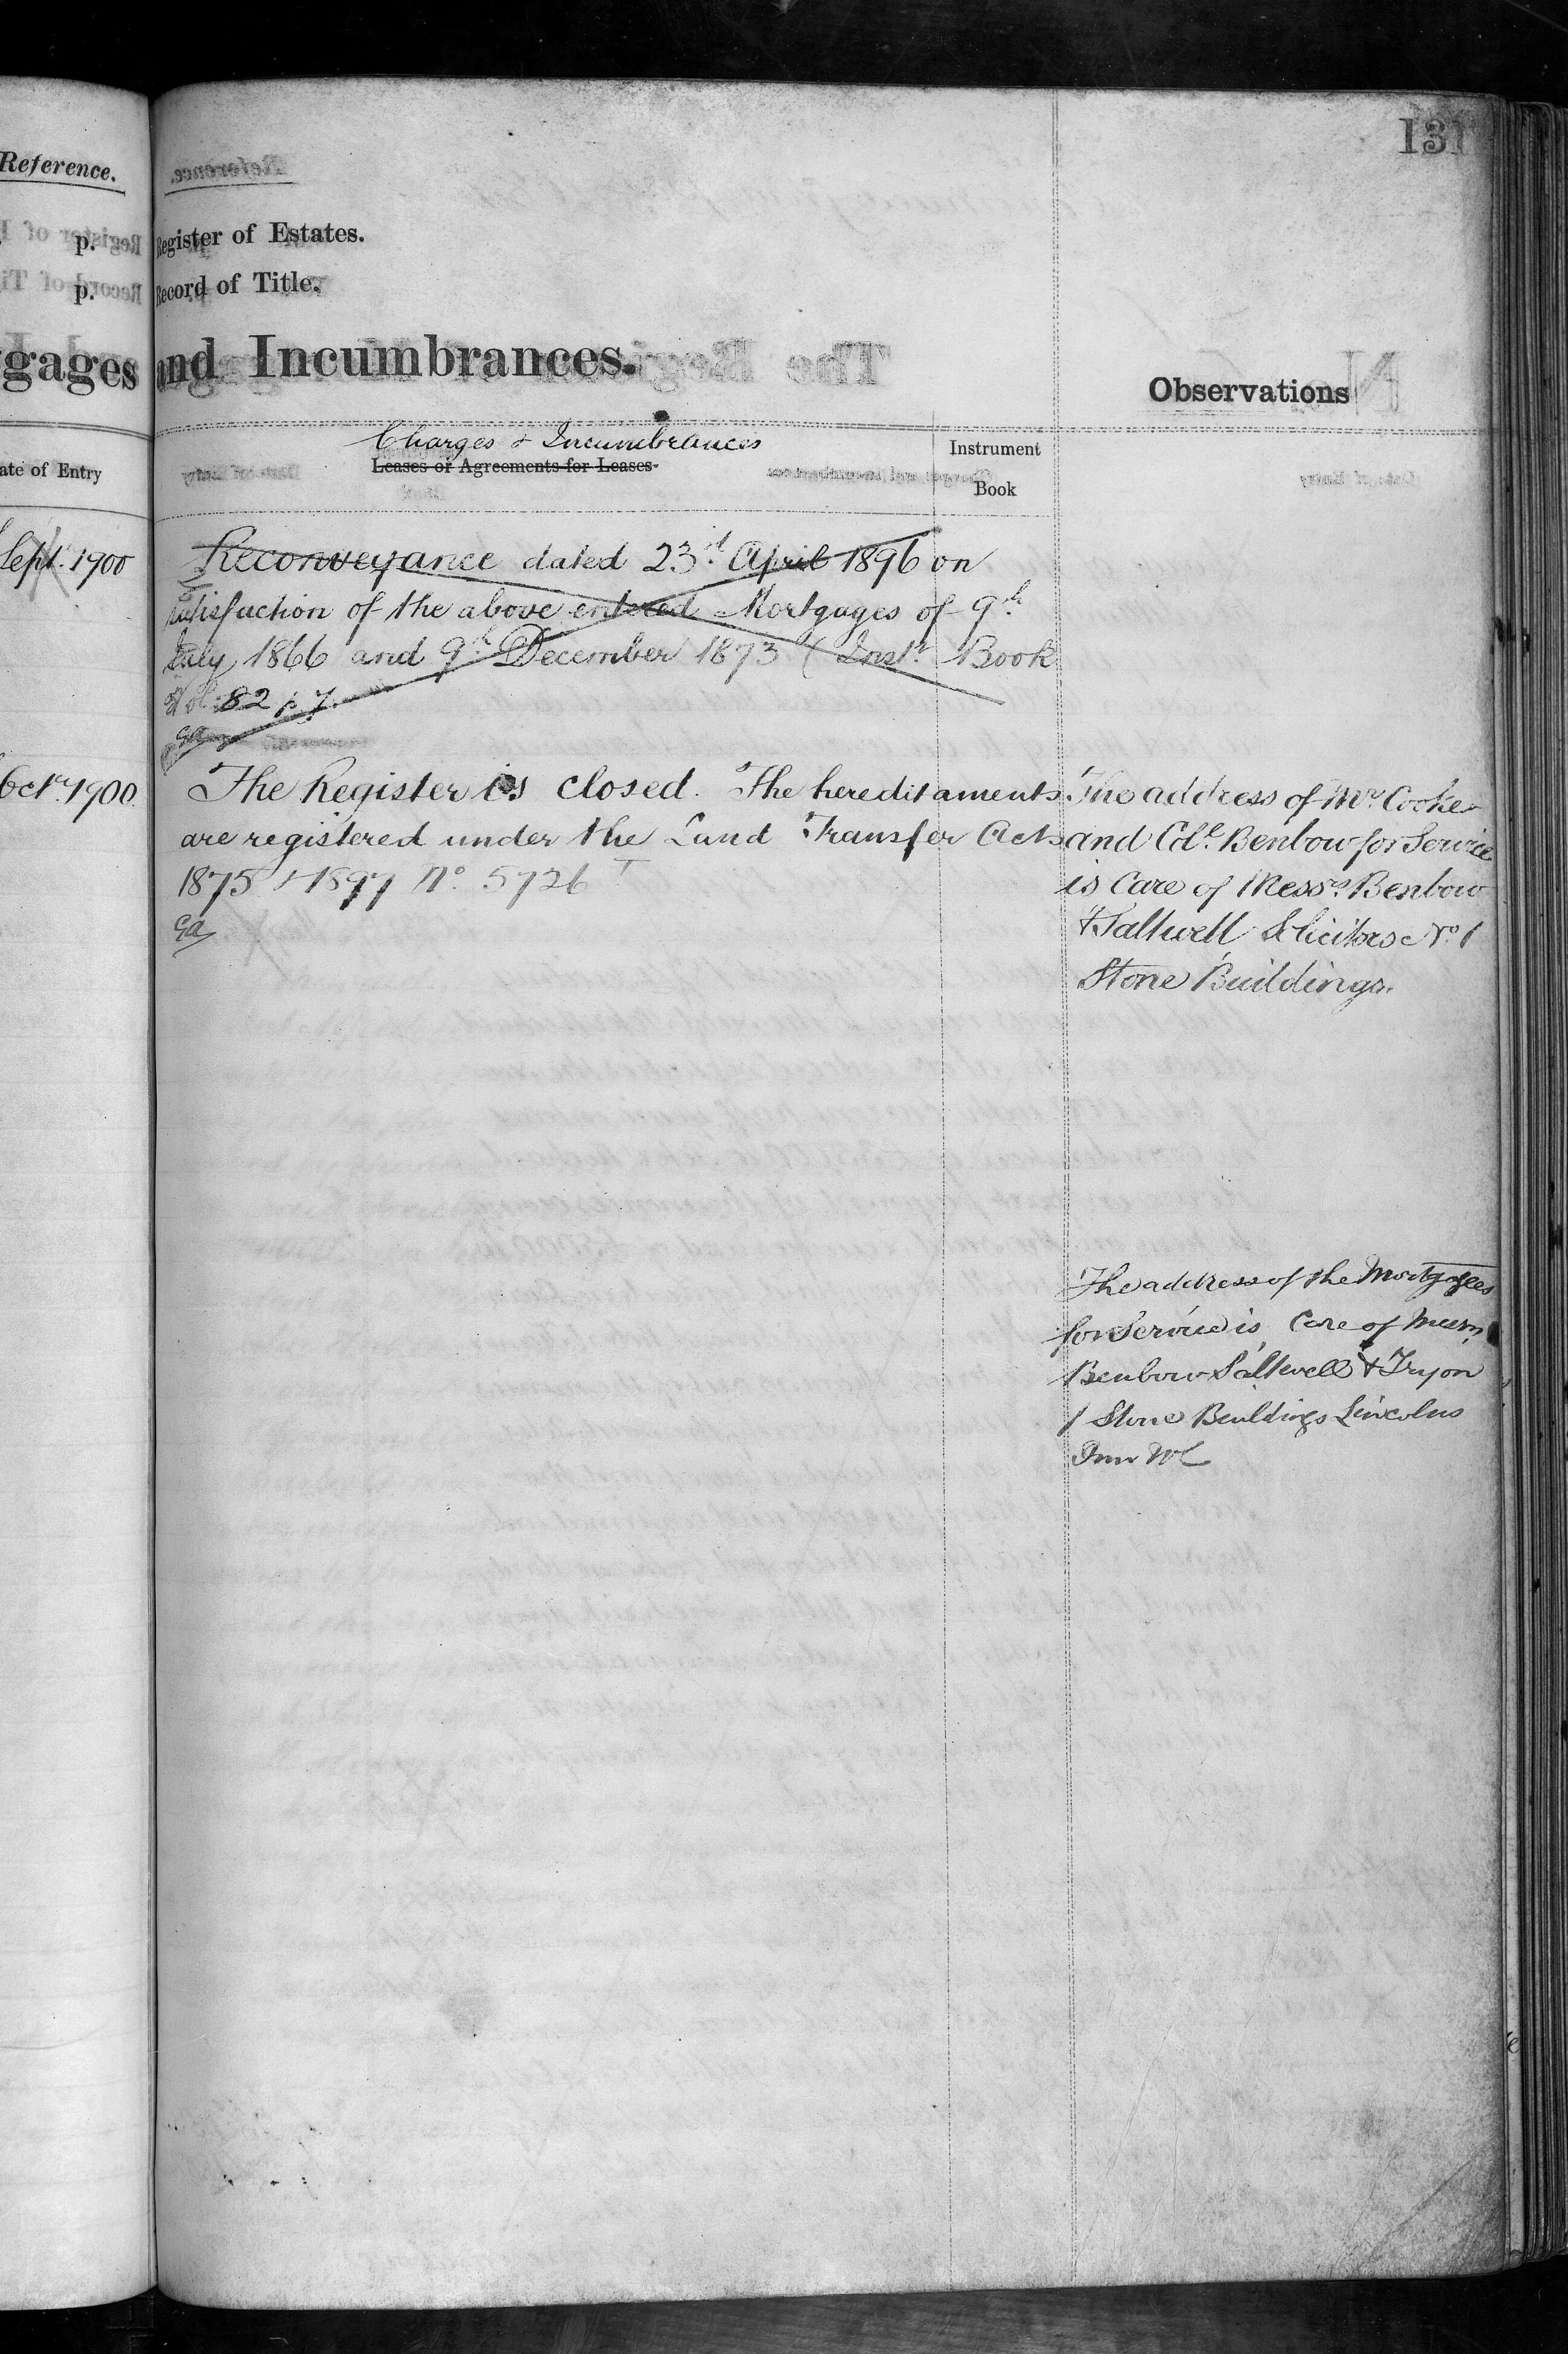 131
Reference.
p. Register of Estates.
p. Record of Title.
gages and Incumbrances.
Observations
ate of Entry
Charges & Incumbrances
Leases or Agreements for Leases.
Instrument
Book
Sept. 1900
Reconveyance dated 23rd April 1896 on
satisfaction of the above entered Mortgages of 9th
July 1866 and 9th December 1873 (Instr. Book
Vol. 82 p 7.
Ga
Octr. 1900
The Register is closed. The hereditaments
are registered under the Land Transfer Acts
1875 & 1897 No. 5726
Ga
The address of Mr Cooke
and Coll. Benbow for Service
is Care of Messrs. Benbow
& Saltwell Solicitors No. 1
Stone Buildings.
The address of the Mortgagees
for Service is Care of Messrs
Benbow Saltwell & Tryon
1 Stone Buildings Lincolns
Inn WC